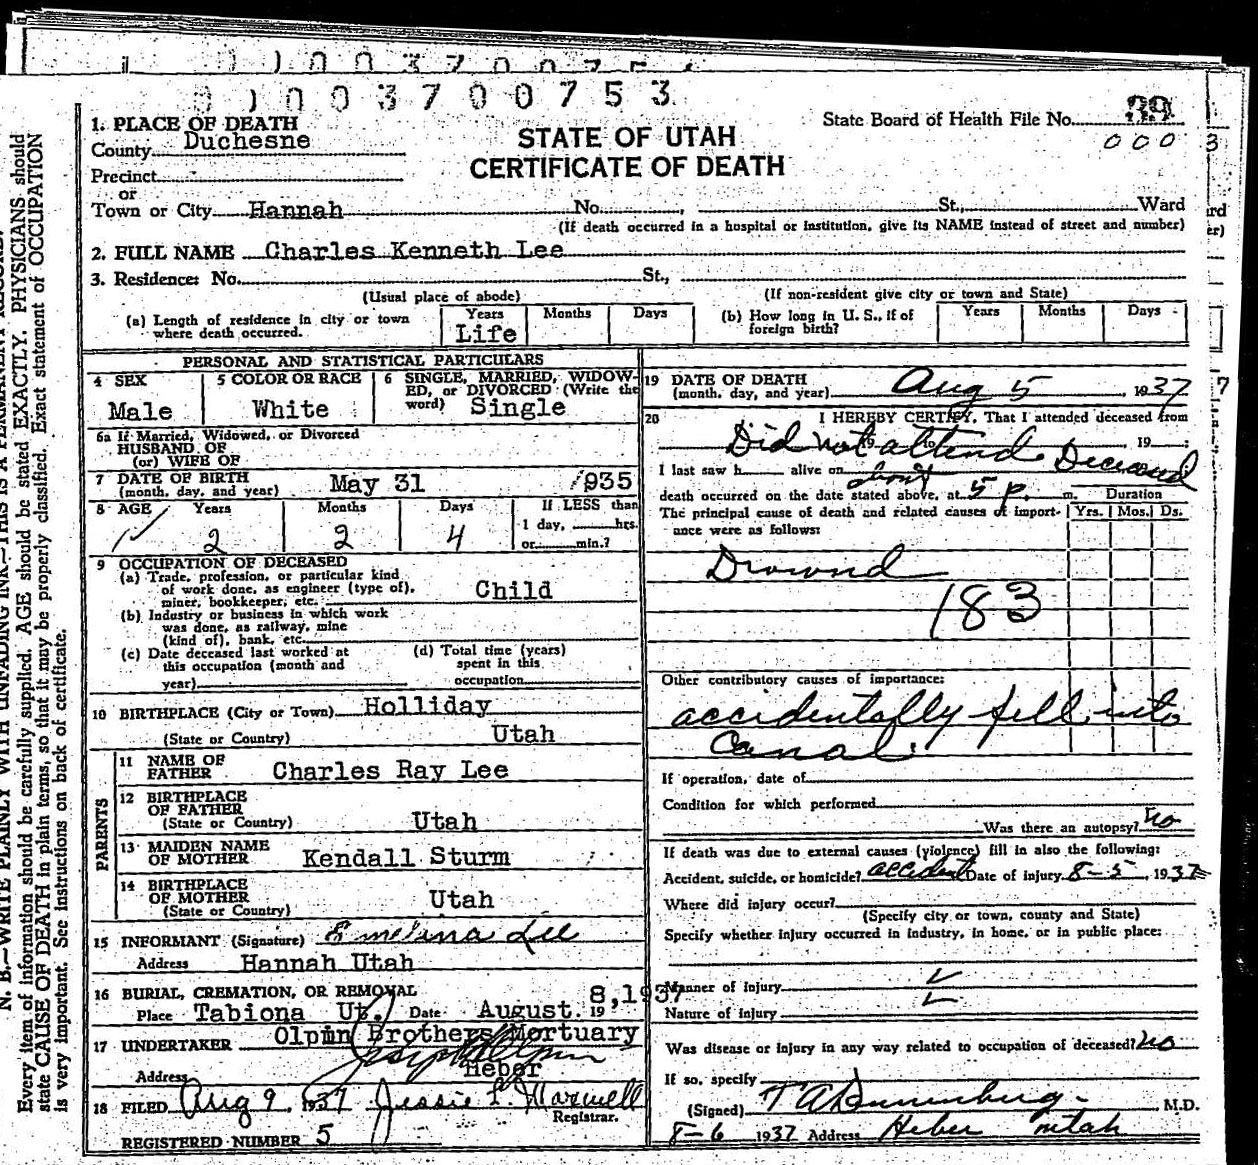 0 1 0 0 3 7 0 0 7 5 3
1. PLACE OF DEATH
County Duchesne
STATE OF UTAH
CERTIFICATE OF DEATH
State Board of Health File No.
000
Precinct
or
Town or City Hannah No. , St., Ward
(If death occurred in a hospital or institution, give its NAME instead of street and number)
2. FULL NAME Charles Kenneth Lee
3. Residence: No. St.,
(Usual place of abode) (If non-resident give city or town and State)
(a) Length of residence in city or town where death occurred. Years Life Months Days
(b) How long in U. S., if of foreign birth? Years Months Days
PERSONAL AND STATISTICAL PARTICULARS
4 SEX Male
5 COLOR OR RACE White
6 SINGLE, MARRIED, WIDOWED, OR DIVORCED (Write the word) Single
6a If Married, Widowed, or Divorced
HUSBAND OF
(or) WIFE OF
7 DATE OF BIRTH (month, day, and year) May 31 1935
8 AGE Years 2 Months 2 Days 4 If LESS than 1 day, hrs. or min.?
9 OCCUPATION OF DECEASED
(a) Trade, profession, or particular kind of work done, as engineer (type of), miner, bookkeeper, etc. Child
(b) Industry or business in which work was done, as railway, mine (kind of), bank, etc.
(c) Date deceased last worked at this occupation (month and year)
(d) Total time (years) spent in this occupation
10 BIRTHPLACE (City or Town) Holliday
(State or Country) Utah
PARENTS
11 NAME OF FATHER Charles Ray Lee
12 BIRTHPLACE OF FATHER (State or Country) Utah
13 MAIDEN NAME OF MOTHER Kendall Sturm
14 BIRTHPLACE OF MOTHER (State or Country) Utah
15 INFORMANT (Signature) Emelina Lee
Address Hannah Utah
16 BURIAL, CREMATION, OR REMOVAL
Place Tabiona Ut. Date August 19 8, 1937
17 UNDERTAKER Olpin Brothers Mortuary
Address Heber
18 FILED Aug 9 1937 Jessie L. Maxwell
Registrar.
REGISTERED NUMBER 5
19 DATE OF DEATH (month, day, and year) Aug 5 1937
20 I HEREBY CERTIFY, That I attended deceased from
Did not attend Deceased 19 to , 19 ;
I last saw h alive on
death occurred on the date stated above, at about 5 p. m. Duration
The principal cause of death and related causes of importance were as follows: Yrs. Mos. Ds.
Drownd
183
Other contributory causes of importance:
accidentally fell into
Canal.
If operation, date of
Condition for which performed
Was there an autopsy? No
If death was due to external causes (violence) fill in also the following:
Accident, suicide, or homicide? accident Date of injury 8-5, 1937
Where did injury occur?
(Specify city or town, county and State)
Specify whether injury occurred in industry, in home, or in public place:
Manner of injury
Nature of injury
Was disease or injury in any way related to occupation of deceased? No
If so, specify
(Signed) M.D.
8-6 1937 Address Heber utah
N. B.—WRITE PLAINLY WITH UNFADING INK—THIS IS A PERMANENT RECORD.
Every item of information should be carefully supplied. AGE should be stated EXACTLY. PHYSICIANS should
state CAUSE OF DEATH in plain terms, so that it may be properly classified. Exact statement of OCCUPATION
is very important. See instructions on back of certificate.